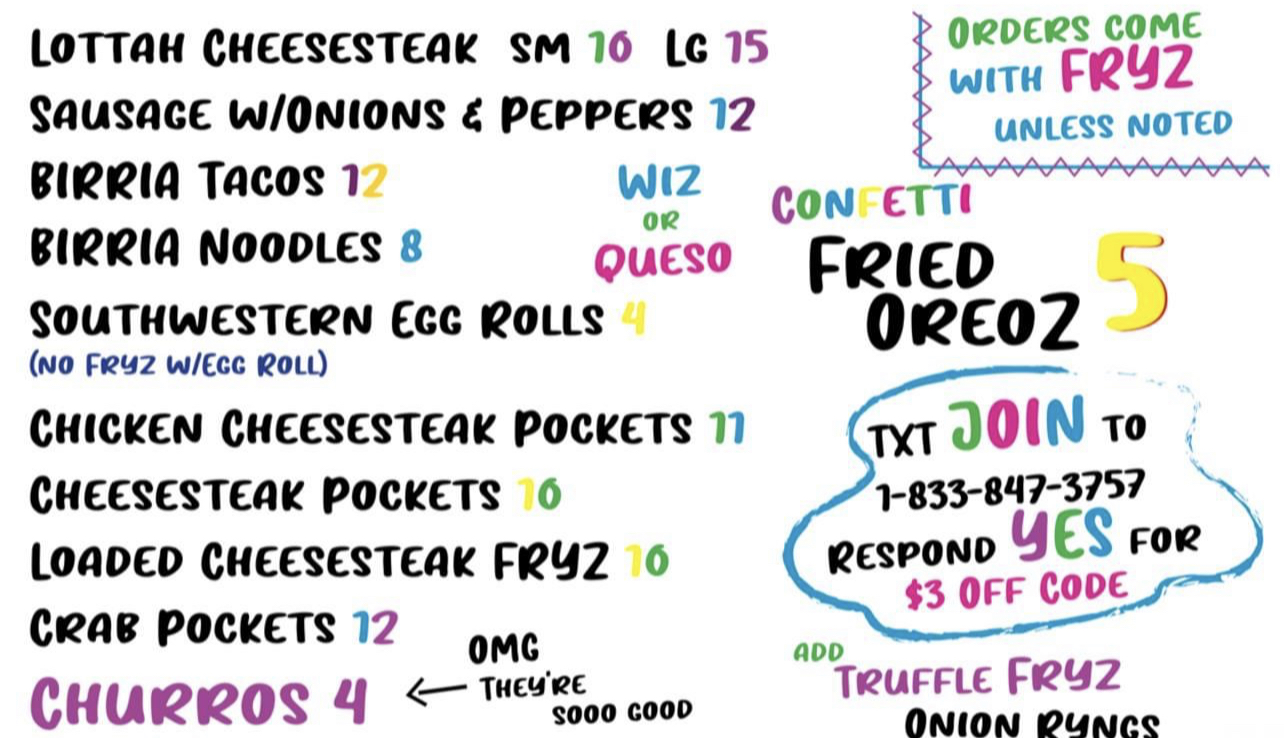 LOTTAH CHEESESTEAK SM 10 LG 15
SAUSAGE W/ONIONS & PEPPERS 12
BIRRIA TACOS 12
BIRRIA NOODLES 8
WIZ
OR
QUESO
SOUTHWESTERN EGG ROLLS 4
(NO FRYZ W/EGG ROLL)
CHICKEN CHEESESTEAK POCKETS 11
CHEESESTEAK POCKETS 10
LOADED CHEESESTEAK FRYZ 10
CRAB POCKETS 12
CHURROS 4
OMG
THEY'RE
SOOO GOOD
ORDERS COME
WITH FRYZ
UNLESS NOTED
CONFETTI
FRIED
OREOZ 5
TXT JOIN TO
1-833-847-3757
RESPOND YES FOR
$3 OFF CODE
ADD
TRUFFLE FRYZ
ONION RYNGS